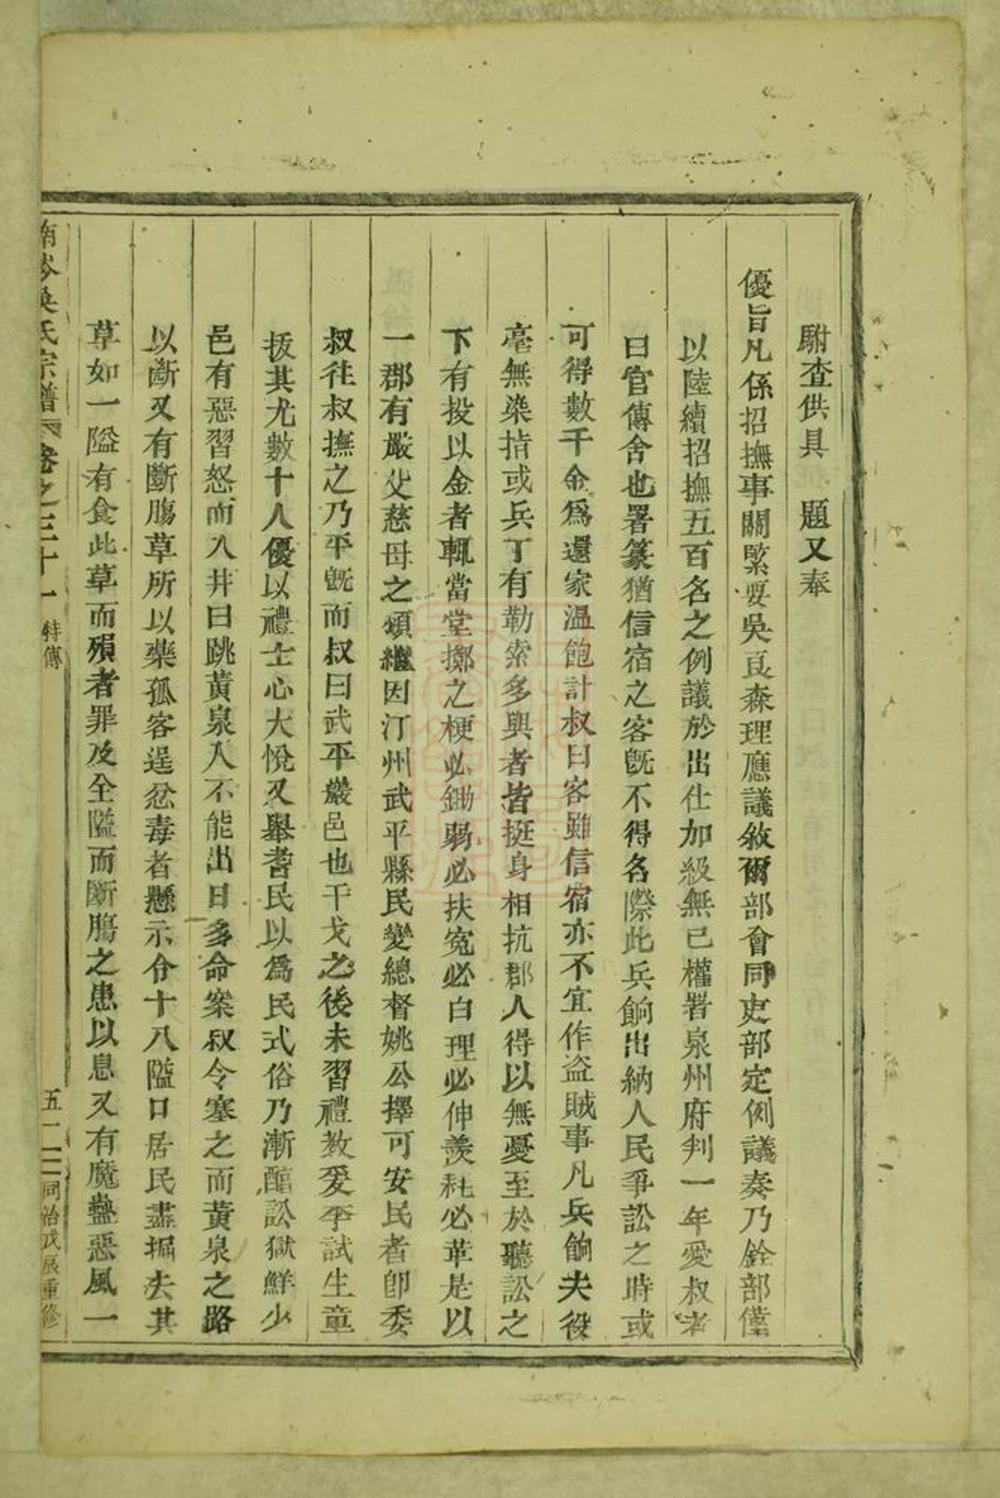 駙查供具　題又奉
優旨凡係招撫事關緊要吳良森理應議敘爾部會同吏部定例議奏乃銓部僅
以陸續招撫五百名之例議於出仕加級無已權署泉州府判一年愛叔者
曰官傳舍也署篆猶信宿之客旣不得名際此兵餉出納人民爭訟之時或
可得數千金爲還家溫飽計叔曰客雖信宿亦不宜作盜賊事凡兵餉夫役
毫無染指或兵丁有勒索多與者皆挺身相抗郡人得以無憂至於聽訟之
下有投以金者輒當堂擲之梗必鋤弱必扶寃必白理必伸羨耗必革是以
一郡有嚴父慈母之頌繼因汀州武平縣民變總督姚公擇可安民者卽委
叔往叔撫之乃平旣而叔曰武平嚴邑也干戈之後未習禮教爰季試生童
拔其尤數十人優以禮士心大悅又舉耆民以爲民式俗乃漸醇訟獄鮮少
邑有惡習怒而入井曰跳黃泉入不能出日多命案叔令塞之而黃泉之路
以斷又有斷腸草所以藥孤客逞忿毒者懸示令十八隘口居民盡掘去其
草如一隘有食此草而殞者罪及全隘而斷腸之患以息又有魔蠱惡風一
南岑吳氏宗譜　卷之三十一　特傳　五十二　同治戊辰重修